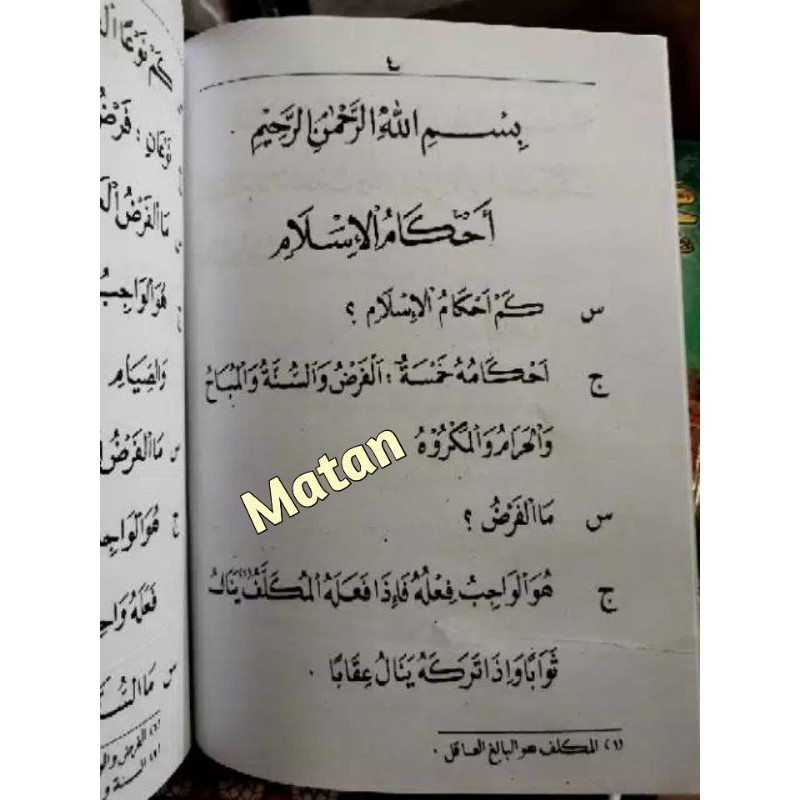 ٤
بِسْمِ اللهِ الرَّحْمٰنِ الرَّحِيْمِ
أَحْكَامُ الْإِسْلَامِ
س كَمْ اَحْكَامُ الْإِسْلَامِ ؟
ج اَحْكَامُهُ خَمْسَةٌ : اَلْفَرْضُ وَالسُّنَّةُ وَالْمُبَاحُ
وَالْحَرَامُ وَالْمَكْرُوْهُ
Matan
س مَا الْفَرْضُ ؟
ج هُوَ الْوَاجِبُ فِعْلُهُ فَإِذَا فَعَلَهُ الْمُكَلَّفُ (١) يَنَالُ
ثَوَابًا وَإِذَا تَرَكَهُ يَنَالُ عِقَابًا .
(١) المكلف هو البالغ العاقل .
كَمْ نَوْعًا
نَوْعَانِ : فَرْضُ
س مَا الْفَرْضُ
ج هُوَ الْوَاجِبُ
وَالصِّيَامِ
س مَا الْفَرْضُ
ج هُوَ الْوَاجِبُ
فَعَلَهُ
س مَا السُّنَّةُ
(١) الفرض
(٢) السنة